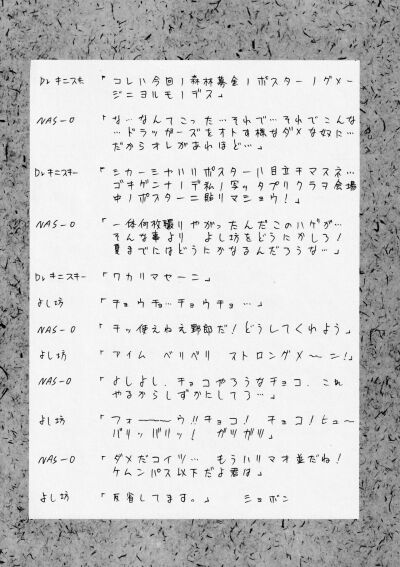 Dr.キニスキー 「コレハ今回ノ森林募金ノポスターノダメー
ジニヨルモノデス」
NAS-O 「な…なんてこった…それで…それでこんな
…ドラッガーズをオトす様なダメな奴に…
だからオレがあれほど…」
Dr.キニスキー 「シカーシナハリポスターハ目立チマスネ…
ゴキゲンナノデ私ノ写ッタプリクラヲ会場
中ノポスターニ貼リマショウ!」
NAS-O 「一体何枚撮りやがったんだこのハゲが…
そんな事より よし坊をどうにかしろ!
夏までにはどうにかなるんだろうな…」
Dr.キニスキー 「ワカリマセーニ」
よし坊 「チョウチョ…チョウチョ…」
NAS-O 「チッ使えねえ野郎だ!どうしてくれよう」
よし坊 「アイム ベリベリ ストロングメ〜ン!」
NAS-O 「よしよし、チョコやろうなチョコ、これ
やるからしずかにしてろ…」
よし坊 「フォーーーウ!!チョコ! チョコ!ヒュ〜
バリッバリッ! ガツガツ」
NAS-O 「ダメだコイツ… もうハリマオ並だね!
ケムンパス以下だよ君は」
よし坊 「反省してます。」 ショボン